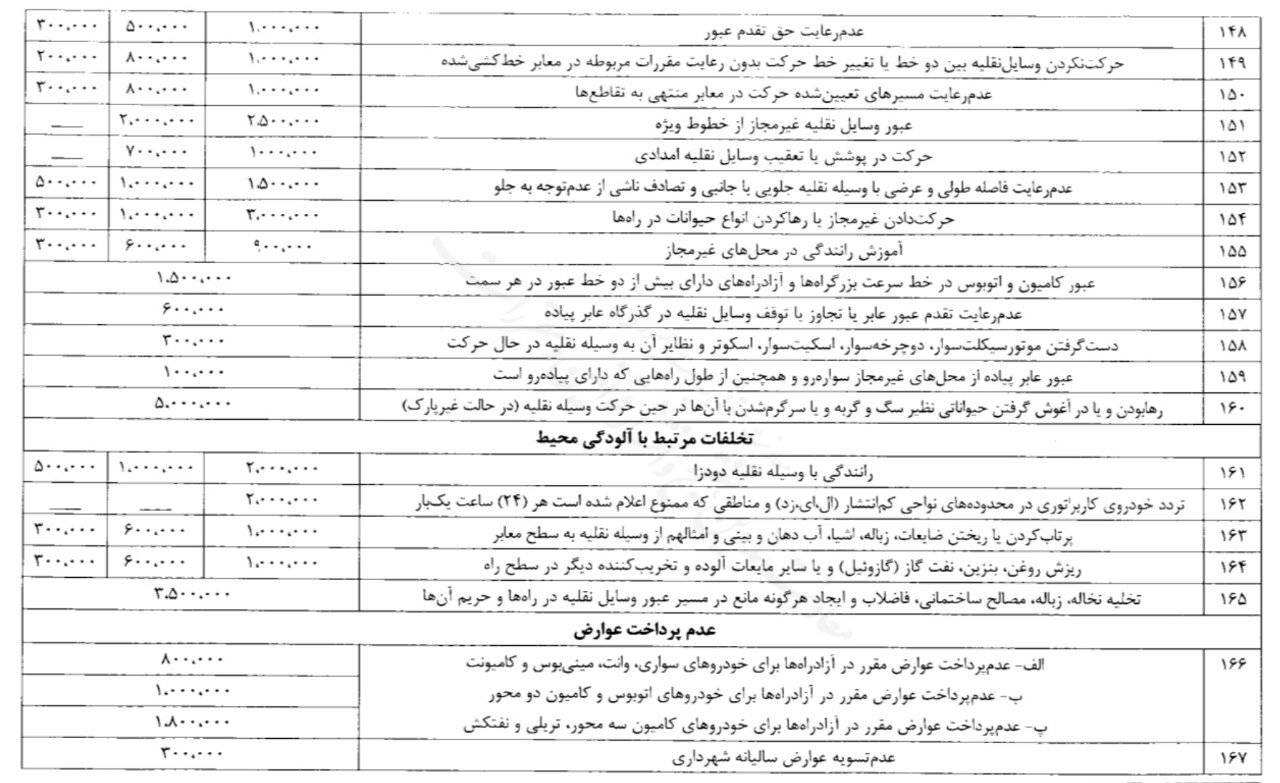 ۱۴۸ عدم‌رعایت حق تقدم عبور ۱.۰۰۰,۰۰۰ ۵۰۰,۰۰۰ ۳۰۰,۰۰۰
۱۴۹ حرکت‌نکردن وسایل‌نقلیه بین دو خط یا تغییر خط حرکت بدون رعایت مقررات مربوطه در معابر خط‌کشی‌شده ۱.۰۰۰,۰۰۰ ۸۰۰,۰۰۰ ۲۰۰,۰۰۰
۱۵۰ عدم‌رعایت مسیرهای تعیین‌شده حرکت در معابر منتهی به تقاطع‌ها ۱.۰۰۰,۰۰۰ ۸۰۰,۰۰۰ ۳۰۰,۰۰۰
۱۵۱ عبور وسایل نقلیه غیرمجاز از خطوط ویژه ۲.۵۰۰,۰۰۰ ۲.۰۰۰,۰۰۰ ___
۱۵۲ حرکت در پوشش یا تعقیب وسایل نقلیه امدادی ۱۰۰۰,۰۰۰ ۷۰۰,۰۰۰ ___
۱۵۳ عدم‌رعایت فاصله طولی و عرضی با وسیله نقلیه جلویی یا جانبی و تصادف ناشی از عدم‌توجه به جلو ۱.۵۰۰,۰۰۰ ۱.۰۰۰,۰۰۰ ۵۰۰,۰۰۰
۱۵۴ حرکت‌دادن غیرمجاز یا رهاکردن انواع حیوانات در راه‌ها ۳.۰۰۰,۰۰۰ ۱.۰۰۰,۰۰۰ ۳۰۰,۰۰۰
۱۵۵ آموزش رانندگی در محل‌های غیرمجاز ۹۰۰,۰۰۰ ۶۰۰,۰۰۰ ۳۰۰,۰۰۰
۱۵۶ عبور کامیون و اتوبوس در خط سرعت بزرگراه‌ها و آزادراه‌های دارای بیش از دو خط عبور در هر سمت ۱.۵۰۰,۰۰۰
۱۵۷ عدم‌رعایت تقدم عبور عابر یا تجاوز یا توقف وسایل نقلیه در گذرگاه عابر پیاده ۶۰۰,۰۰۰
۱۵۸ دست‌گرفتن موتورسیکلت‌سوار، دوچرخه‌سوار، اسکیت‌سوار، اسکوتر و نظایر آن به وسیله نقلیه در حال حرکت ۳۰۰,۰۰۰
۱۵۹ عبور عابر پیاده از محل‌های غیرمجاز سواره‌رو و همچنین از طول راه‌هایی که دارای پیاده‌رو است ۱۰۰,۰۰۰
۱۶۰ رهابودن و یا در آغوش گرفتن حیواناتی نظیر سگ و گربه و یا سرگرم‌شدن با آن‌ها در حین حرکت وسیله نقلیه (در حالت غیرپارک) ۵.۰۰۰,۰۰۰
تخلفات مرتبط با آلودگی محیط
۱۶۱ رانندگی با وسیله نقلیه دودزا ۲.۰۰۰,۰۰۰ ۱.۰۰۰,۰۰۰ ۵۰۰,۰۰۰
۱۶۲ تردد خودروی کاربراتوری در محدوده‌های نواحی کم‌انتشار (ال‌.ای.زد) و مناطقی که ممنوع اعلام شده است هر (۲۴) ساعت یک‌بار ۲.۰۰۰,۰۰۰ ___ ___
۱۶۳ پرتاب‌کردن یا ریختن ضایعات، زباله، اشیا، آب دهان و بینی و امثالهم از وسیله نقلیه به سطح معابر ۱.۰۰۰,۰۰۰ ۶۰۰,۰۰۰ ۳۰۰,۰۰۰
۱۶۴ ریزش روغن، بنزین، نفت گاز (گازوئیل) و یا سایر مایعات آلوده و تخریب‌کننده دیگر در سطح راه ۱.۰۰۰,۰۰۰ ۶۰۰,۰۰۰ ۳۰۰,۰۰۰
۱۶۵ تخلیه نخاله، زباله، مصالح ساختمانی، فاضلاب و ایجاد هرگونه مانع در مسیر عبور وسایل نقلیه در راه‌ها و حریم آن‌ها ۳.۵۰۰,۰۰۰
عدم پرداخت عوارض
۱۶۶ الف- عدم‌پرداخت عوارض مقرر در آزادراه‌ها برای خودروهای سواری، وانت، مینی‌بوس و کامیونت ۸۰۰,۰۰۰
ب- عدم‌پرداخت عوارض مقرر در آزادراه‌ها برای خودروهای اتوبوس و کامیون دو محور ۱.۰۰۰,۰۰۰
پ- عدم‌پرداخت عوارض مقرر در آزادراه‌ها برای خودروهای کامیون سه محور، تریلی و نفتکش ۱.۸۰۰,۰۰۰
۱۶۷ عدم‌تسویه عوارض سالیانه شهرداری ۳۰۰,۰۰۰